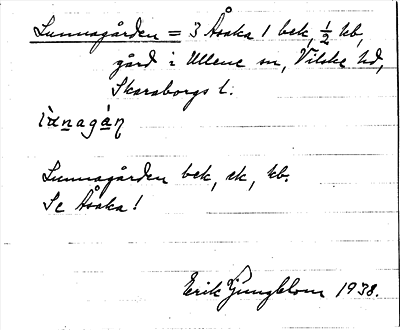 Lunnagården = 3 Åsaka 1 bek, ½ kb,
gård i Ullene sn, Vilske hd,
Skaraborgs l.
Lunnagården bek, ek, kb.
Se Åsaka!
Erik Ljungblom 1938.